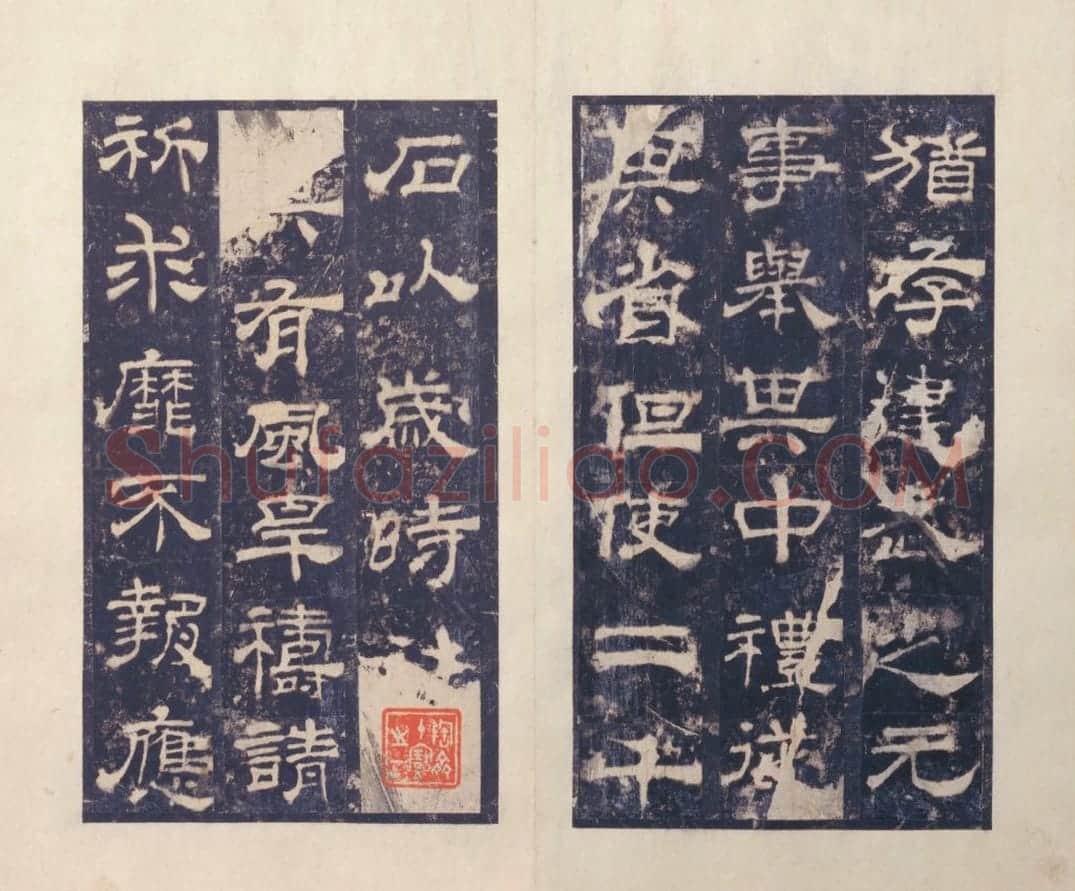 猶存建武之元
事舉其中禮從
其省但使二千
石以歲時
有風旱禱請
祈求靡不報應
Shufaziliao.COM